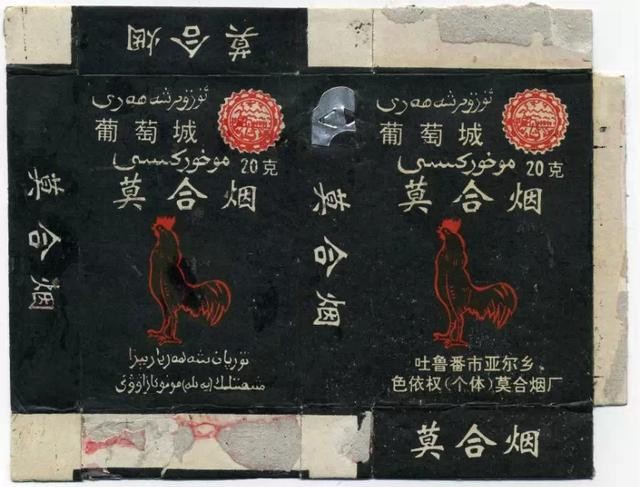 莫合烟
ئۈزۈم شەھەرى
葡萄城
موخوركىسى 20克
莫合烟
تۇرپان شەھەر يار يېزا
莫合烟
莫合烟
ئۈزۈم شەھەرى
葡萄城
موخوركىسى 20克
莫合烟
吐鲁番市亚尔乡
色依权(个体)莫合烟厂
莫合烟